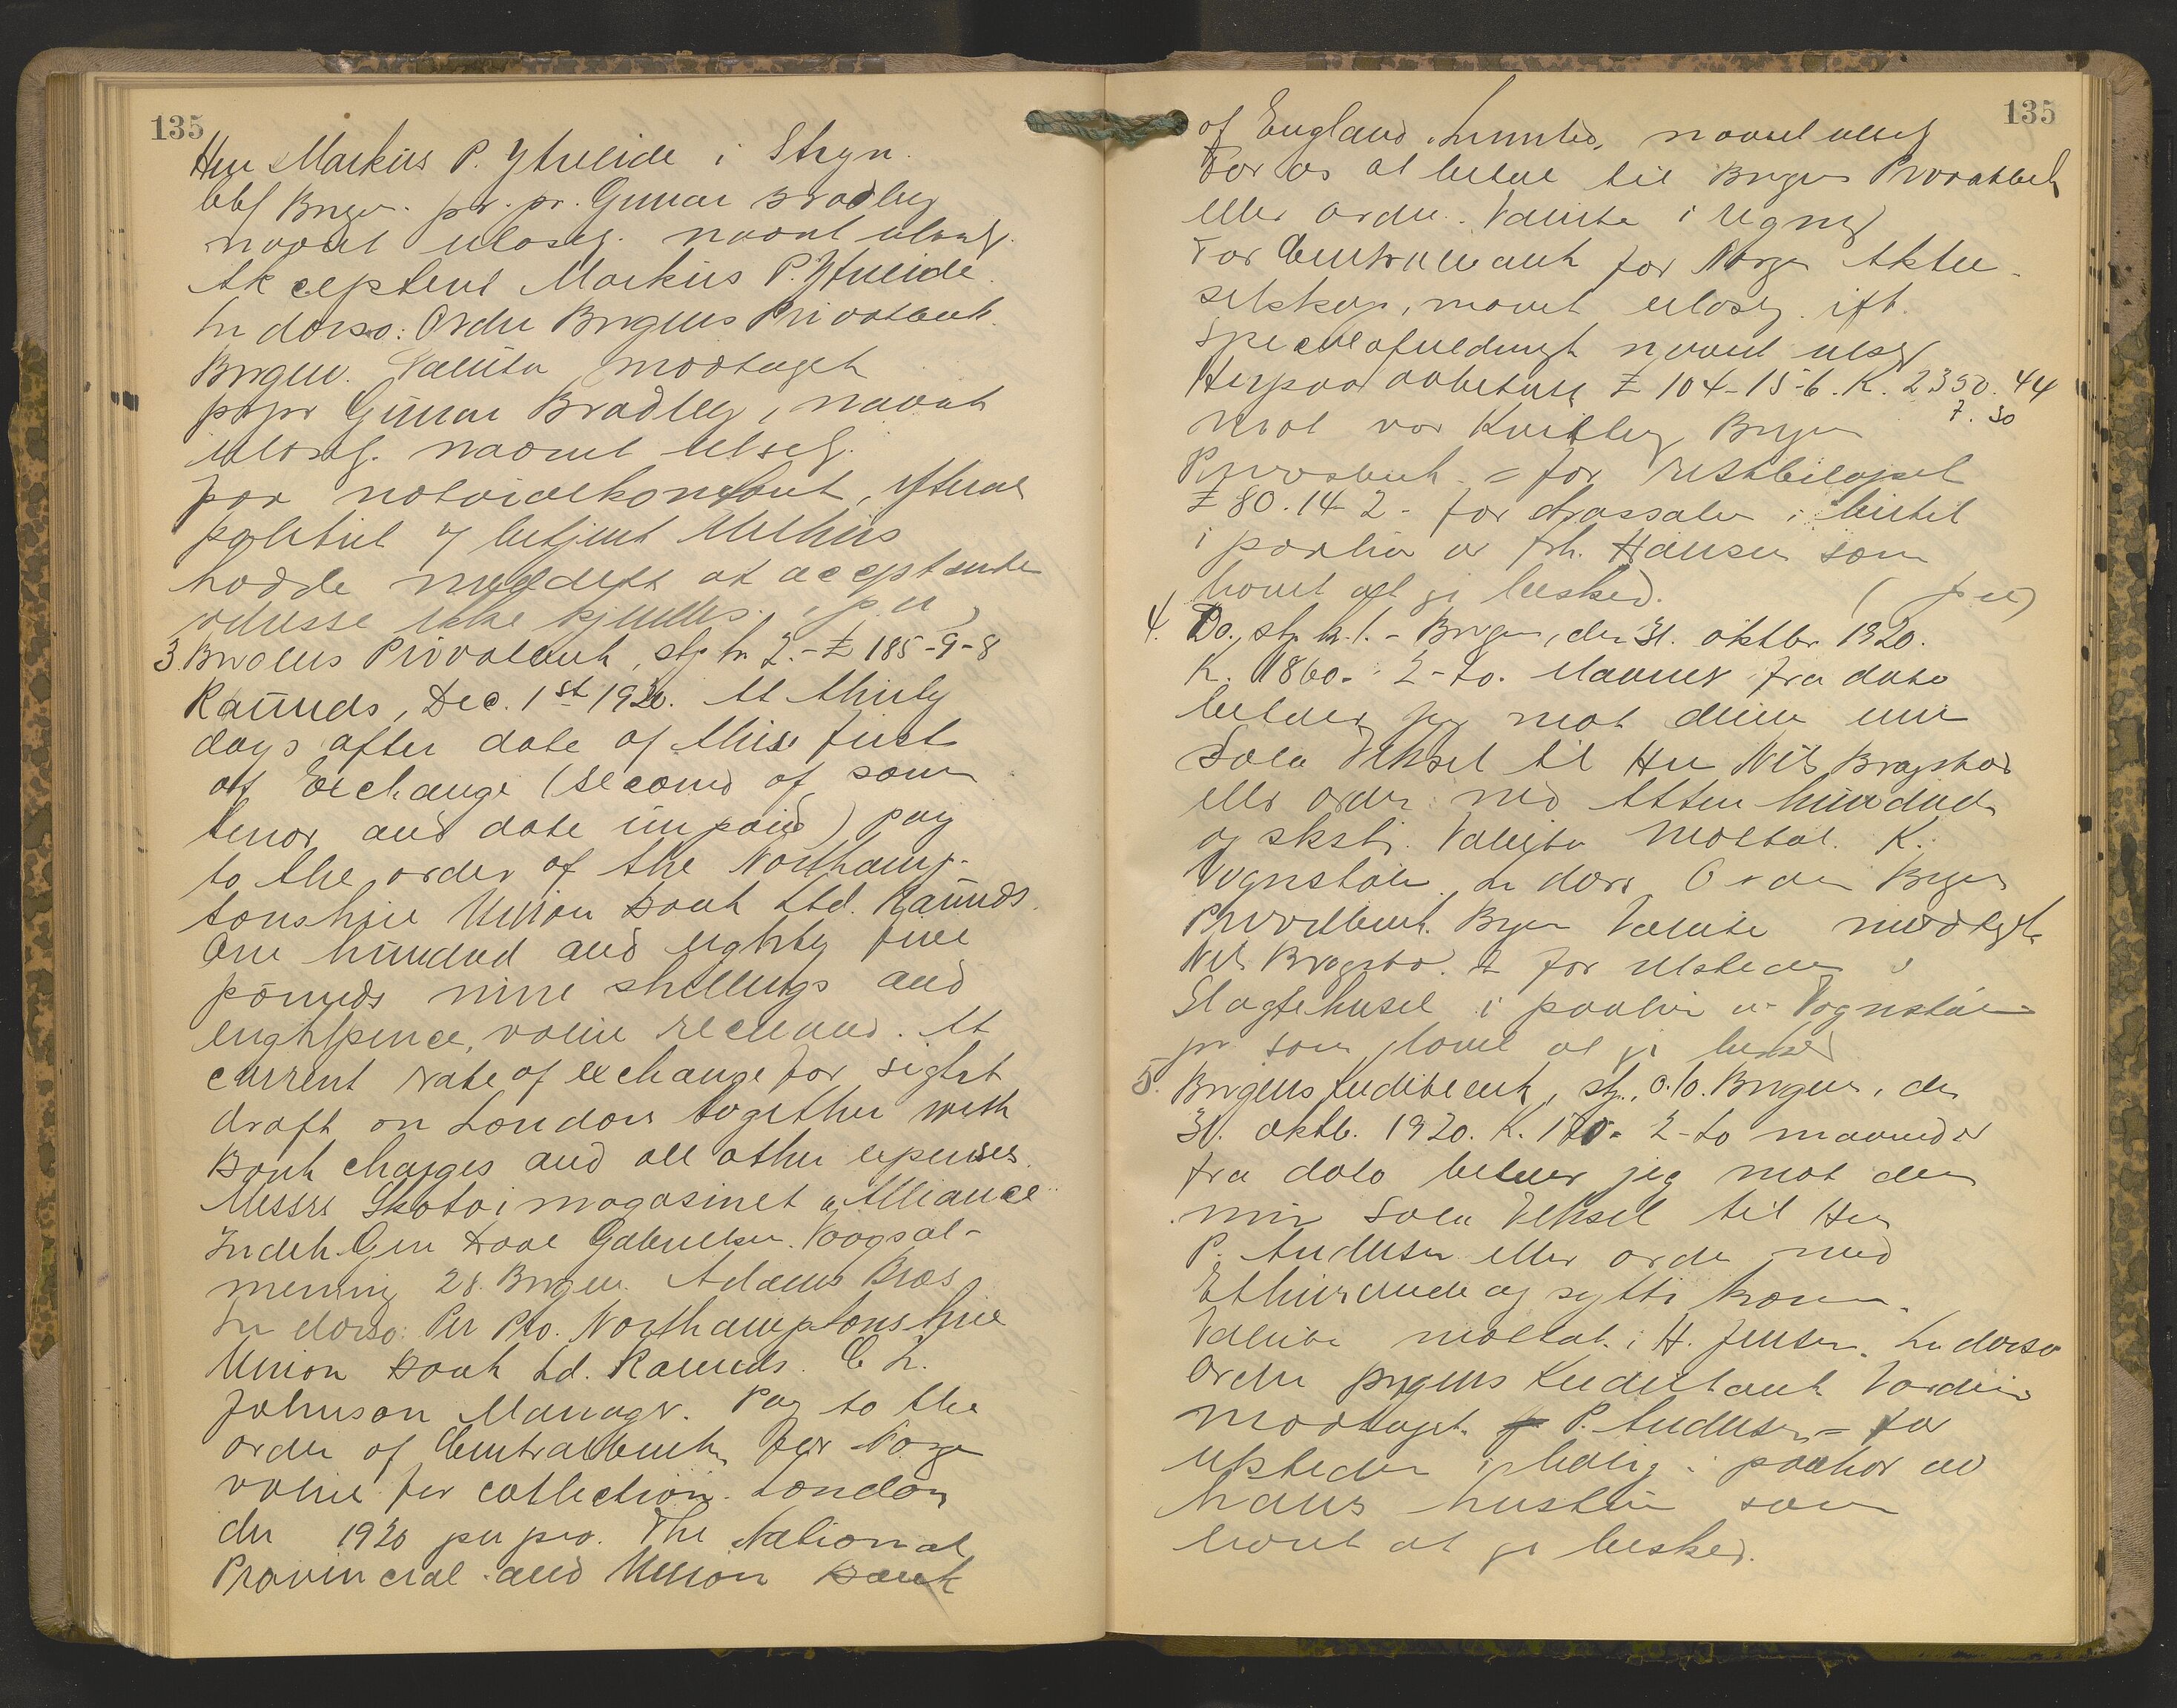 135
Herr Markus P. Ytreeide i Stryn.
bbf Bergen. pr. pr. Gunnar Bradley
navnet ulæsel. navnet ulæsel.
Akceptent Markus P. Ytreeide.
In dorso: Ordre Bergens Privatbank.
Bergen. Valuta modtaget
pr pr Gunnar Bradley, navnet
ulæsel. navnet ulæsel.
paa notarialkontoret, efterat
politiet betjent
hadde meddelt at acceptantens
adresse ikke kjendes. (p.u.)
3. Bergens Privatbank, stp kr 2.- £ 185-9-8
Raunds, Dec. 1st 1920. At thirty
days after date of this first
of Exchange (second of same
tenor and date unpaid) pay
to the order of the Northamp-
tonshire Union Bank Ltd. Raunds.
One hundred and eighty five
pounds nine shillings and
eightpence, value received. At
current rate of exchange for sight
draft on London together with
Bank charges and all other expenses.
Messrs Skotøimagasinet Alliance
Indeh. Gabrielsen. Vaagsal-
mening 28. Bergen. Adams Bros
In dorso: Per Pro. Northamptonshire
Union Bank Ld. Raunds. C. L.
Johnson Manager. Pay to the
order of Centralbanken for Norge
value for collection. London
den 1920 per pro. The National
Provincial and Union Bank
135
of England Limited, navnet ulæsel
For os at betale til Bergens Privatbank
eller ordre. Valuta i regning
For Centralbank for Norge Aktie-
selskap, navnet ulæsel. ift.
Specialafmeldingst navnet ulæsel
Herpaa avbetalt £ 104-15-6. K. 2350.44
7.30
mot vor Kvittering Bergens
Privatbank. = for restbeløpet
£ 80.14-2 - for trassaten i butik
i paahør av frk. Hansen som
lovet at gi besked. (p.u.)
4. Do., stp. kr. 1. - Bergen, den 31. oktbr 1920.
K. 1860.- 2-to. Maaneder fra dato
betaler jeg mot denne min
Sola Veksel til Herr Nils Bragstad
eller ordre med Atten hundrede
og seksti. Valuta Mottat. K.
Vognstølen. In dorso Ordre Bergens
Privatbank. Bergen Valuta modtaget
Nils Bragstad. = for utstederen i
Slagtehuset i paahør av Vognstølen
jr som lovet at gi besked
5. Bergens Kreditbank, stp. 0.10. Bergen, den
31. oktb. 1920. K. 170.- 2-to maaneder
fra dato betaler jeg mot denne
min Sola Veksel til Herr
P. Andersen eller ordre med
Ethundrede og sytti kroner.
Valuta mottat. H. Jensen. In dorso
Ordre Bergens Kreditbank Værdien
modtaget. P. Andersen = for
utstederen i bolig i paahør av
hans hustru som
lovet at gi besked.